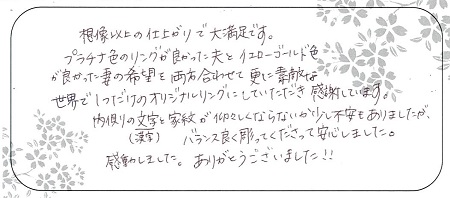 想像以上の仕上がりで大満足です。
プラチナ色のリングが良かった夫とイエローゴールド色
が良かった妻の希望を両方合わせて更に素敵な
世界で1つだけのオリジナルリングにしていただき感謝しています。
内側りの文字と家紋が仰々しくならないか少し不安もありましたが、
(漢字) バランス良く彫ってくださって安心しました。
感動しました。ありがとうございました!!